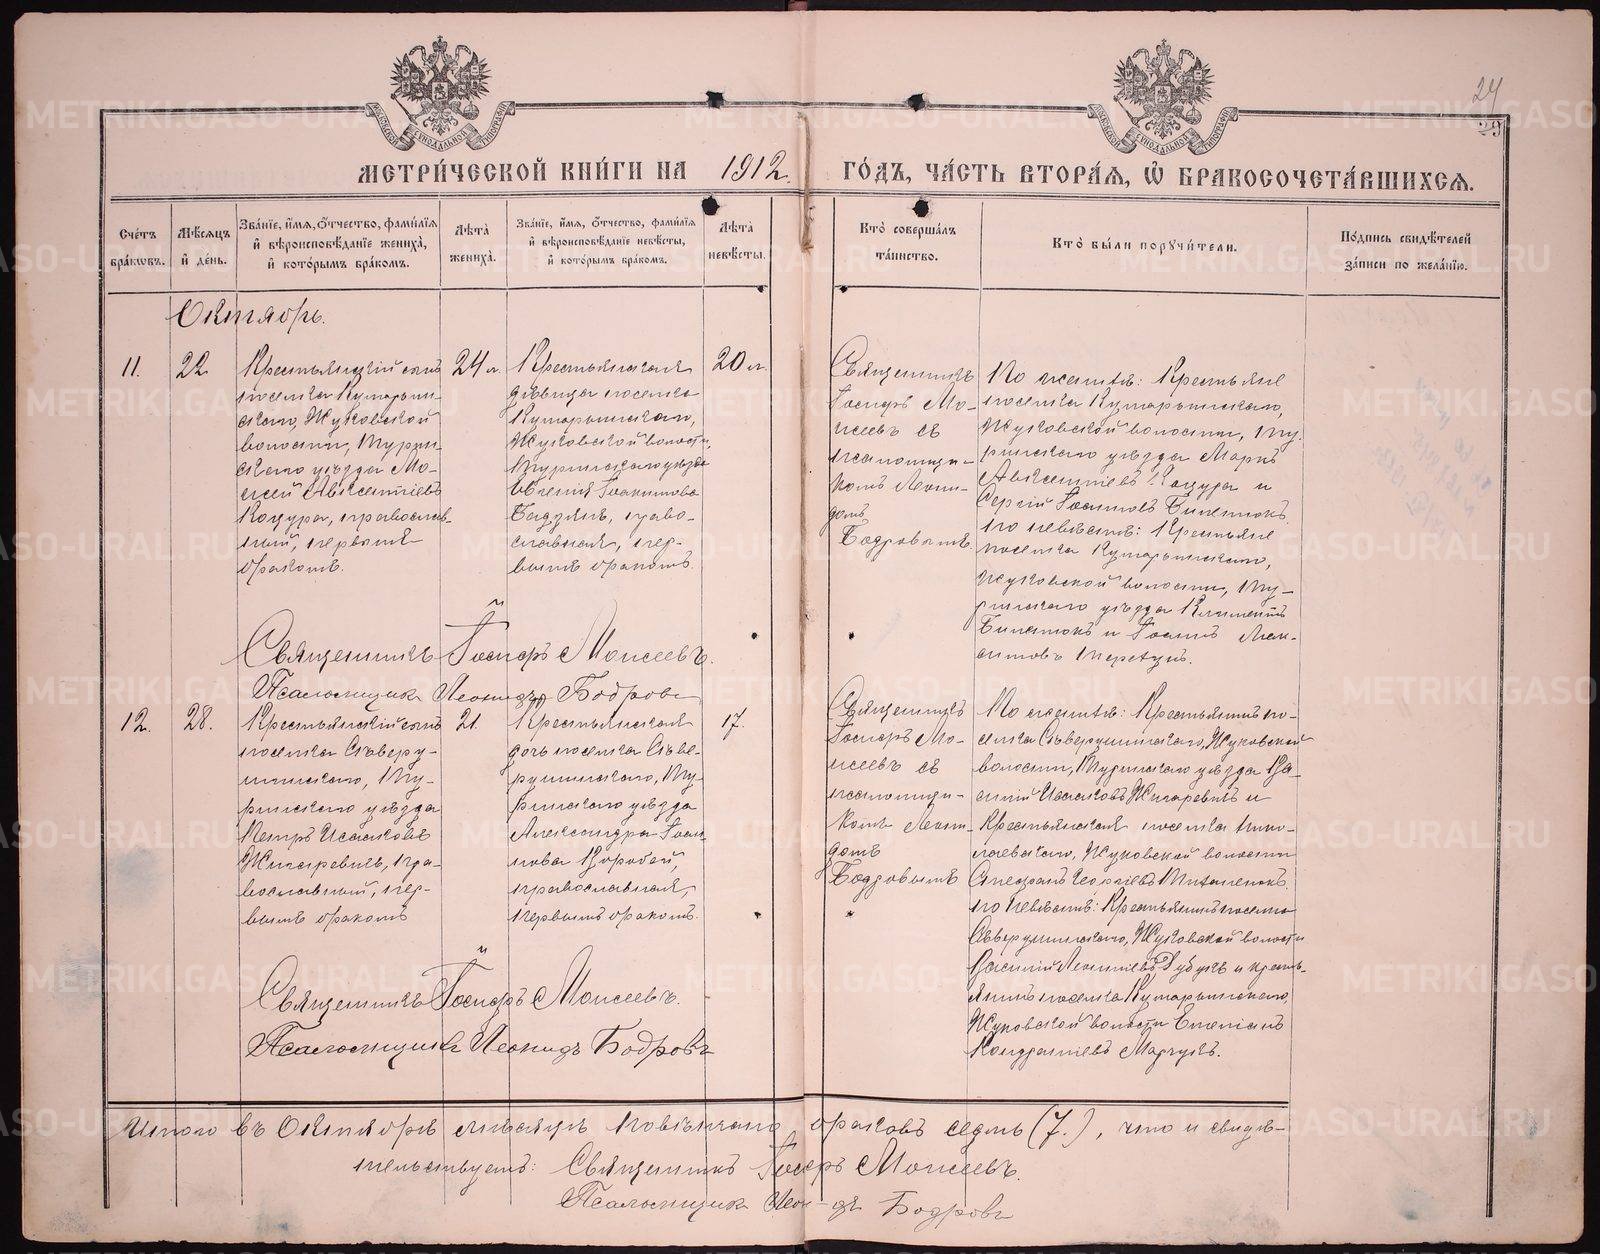 24
29
МЕТРИ́ЧЕСКОЙ КНИ́ГИ НА 1912. ГО́ДЪ, ЧА́СТЬ ВТОРА́Я, Ѽ БРАКОСОЧЕТА́ВШИХСЯ.
Сче́тъ бра́кѡвъ.
Мѣ́сяцъ и҆ де́нь.
Зва́нїе, и҆́мя, ѻ҆́тчество, фами́лїя
и҆ вѣроисповѣ́данїе жениха̀,
и҆ кото́рымъ бра́комъ.
Лѣ́та жениха̀.
Зва́нїе, и҆́мя, ѻ҆́тчество, фами́лїя
и҆ вѣроисповѣ́данїе невѣ́сты,
и҆ кото́рымъ бра́комъ.
Лѣ́та невѣ́сты.
Кто̀ соверша́лъ
та́инство.
Кто̀ бы́ли порꙋчи́тели.
По́дпись свидѣ́телей
за́писи по жела́нїю.
Октябрь.
11.
22
Крестьянскій сынъ
поселка Кумарьин-
скаго, Жуковской
волости, Турин-
скаго уѣзда Мо-
исей Авксентіевъ
Кацура, православ-
ный, первымъ
бракомъ.
24 л.
Крестьянская
дѣвица поселка
Кумарьинскаго,
Жуковской волости,
Туринскаго уѣзда
Евгенія Іоакимова
православная, пер-
вымъ бракомъ.
20 л.
Священникъ
Іосифъ Мо-
исеевъ съ
псаломщи-
комъ Леони-
домъ
Бодровымъ
По женихѣ: Крестьяне
поселка Кумарьинскаго,
Жуковской волости, Ту-
ринскаго уѣзда Маркъ
Авксентіевъ Кацура и
Сергій Іоанновъ Билетюкъ
по невѣстѣ: Крестьяне
поселка Кумарьинскаго,
Жуковской волости, Ту-
ринскаго уѣзда Климентъ
Билетюкъ и Іоаннъ Мак-
симовъ
Священникъ Іосифъ Моисеевъ.
Псаломщикъ Леонидъ Бодровъ
12.
28.
Крестьянскій сынъ
поселка Сѣверу-
шинскаго, Ту-
ринскаго уѣзда
Петръ Исааковъ
Житаревичъ, пра-
вославный, пер-
вымъ бракомъ
21.
Крестьянская
дочь поселка Сѣве-
рушинскаго, Ту-
ринскаго уѣзда
Александра Іоан-
нова Воробей,
православная,
первымъ бракомъ.
17.
Священникъ
Іосифъ Мо-
исеевъ съ
псаломщи-
комъ Леони-
домъ
Бодровымъ
По женихѣ: Крестьянинъ по-
селка Сѣверушинскаго, Жуковской
волости, Туринскаго уѣзда Ва-
силій Исааковъ Житаревичъ и
поселка Нико-
лаевскаго, Жуковской волости
Стефанъ Георгіевъ
по невѣстѣ: Крестьянинъ поселка
Сѣверушинскаго, Жуковской волости
Василій Леонтіевъ и кресть-
янинъ поселка Кумарьинскаго,
Жуковской волости Емеліанъ
Кондратіевъ Марчукъ.
Священникъ Іосифъ Моисеевъ.
Псаломщикъ Леонидъ Бодровъ
Итого въ Октябрѣ мѣсяцѣ повѣнчано браковъ семь (7.), что и свидѣ-
тельствуетъ: Священникъ Іосифъ Моисеевъ.
Псаломщикъ Леонидъ Бодровъ
METRIKI.GASO-URAL.RU